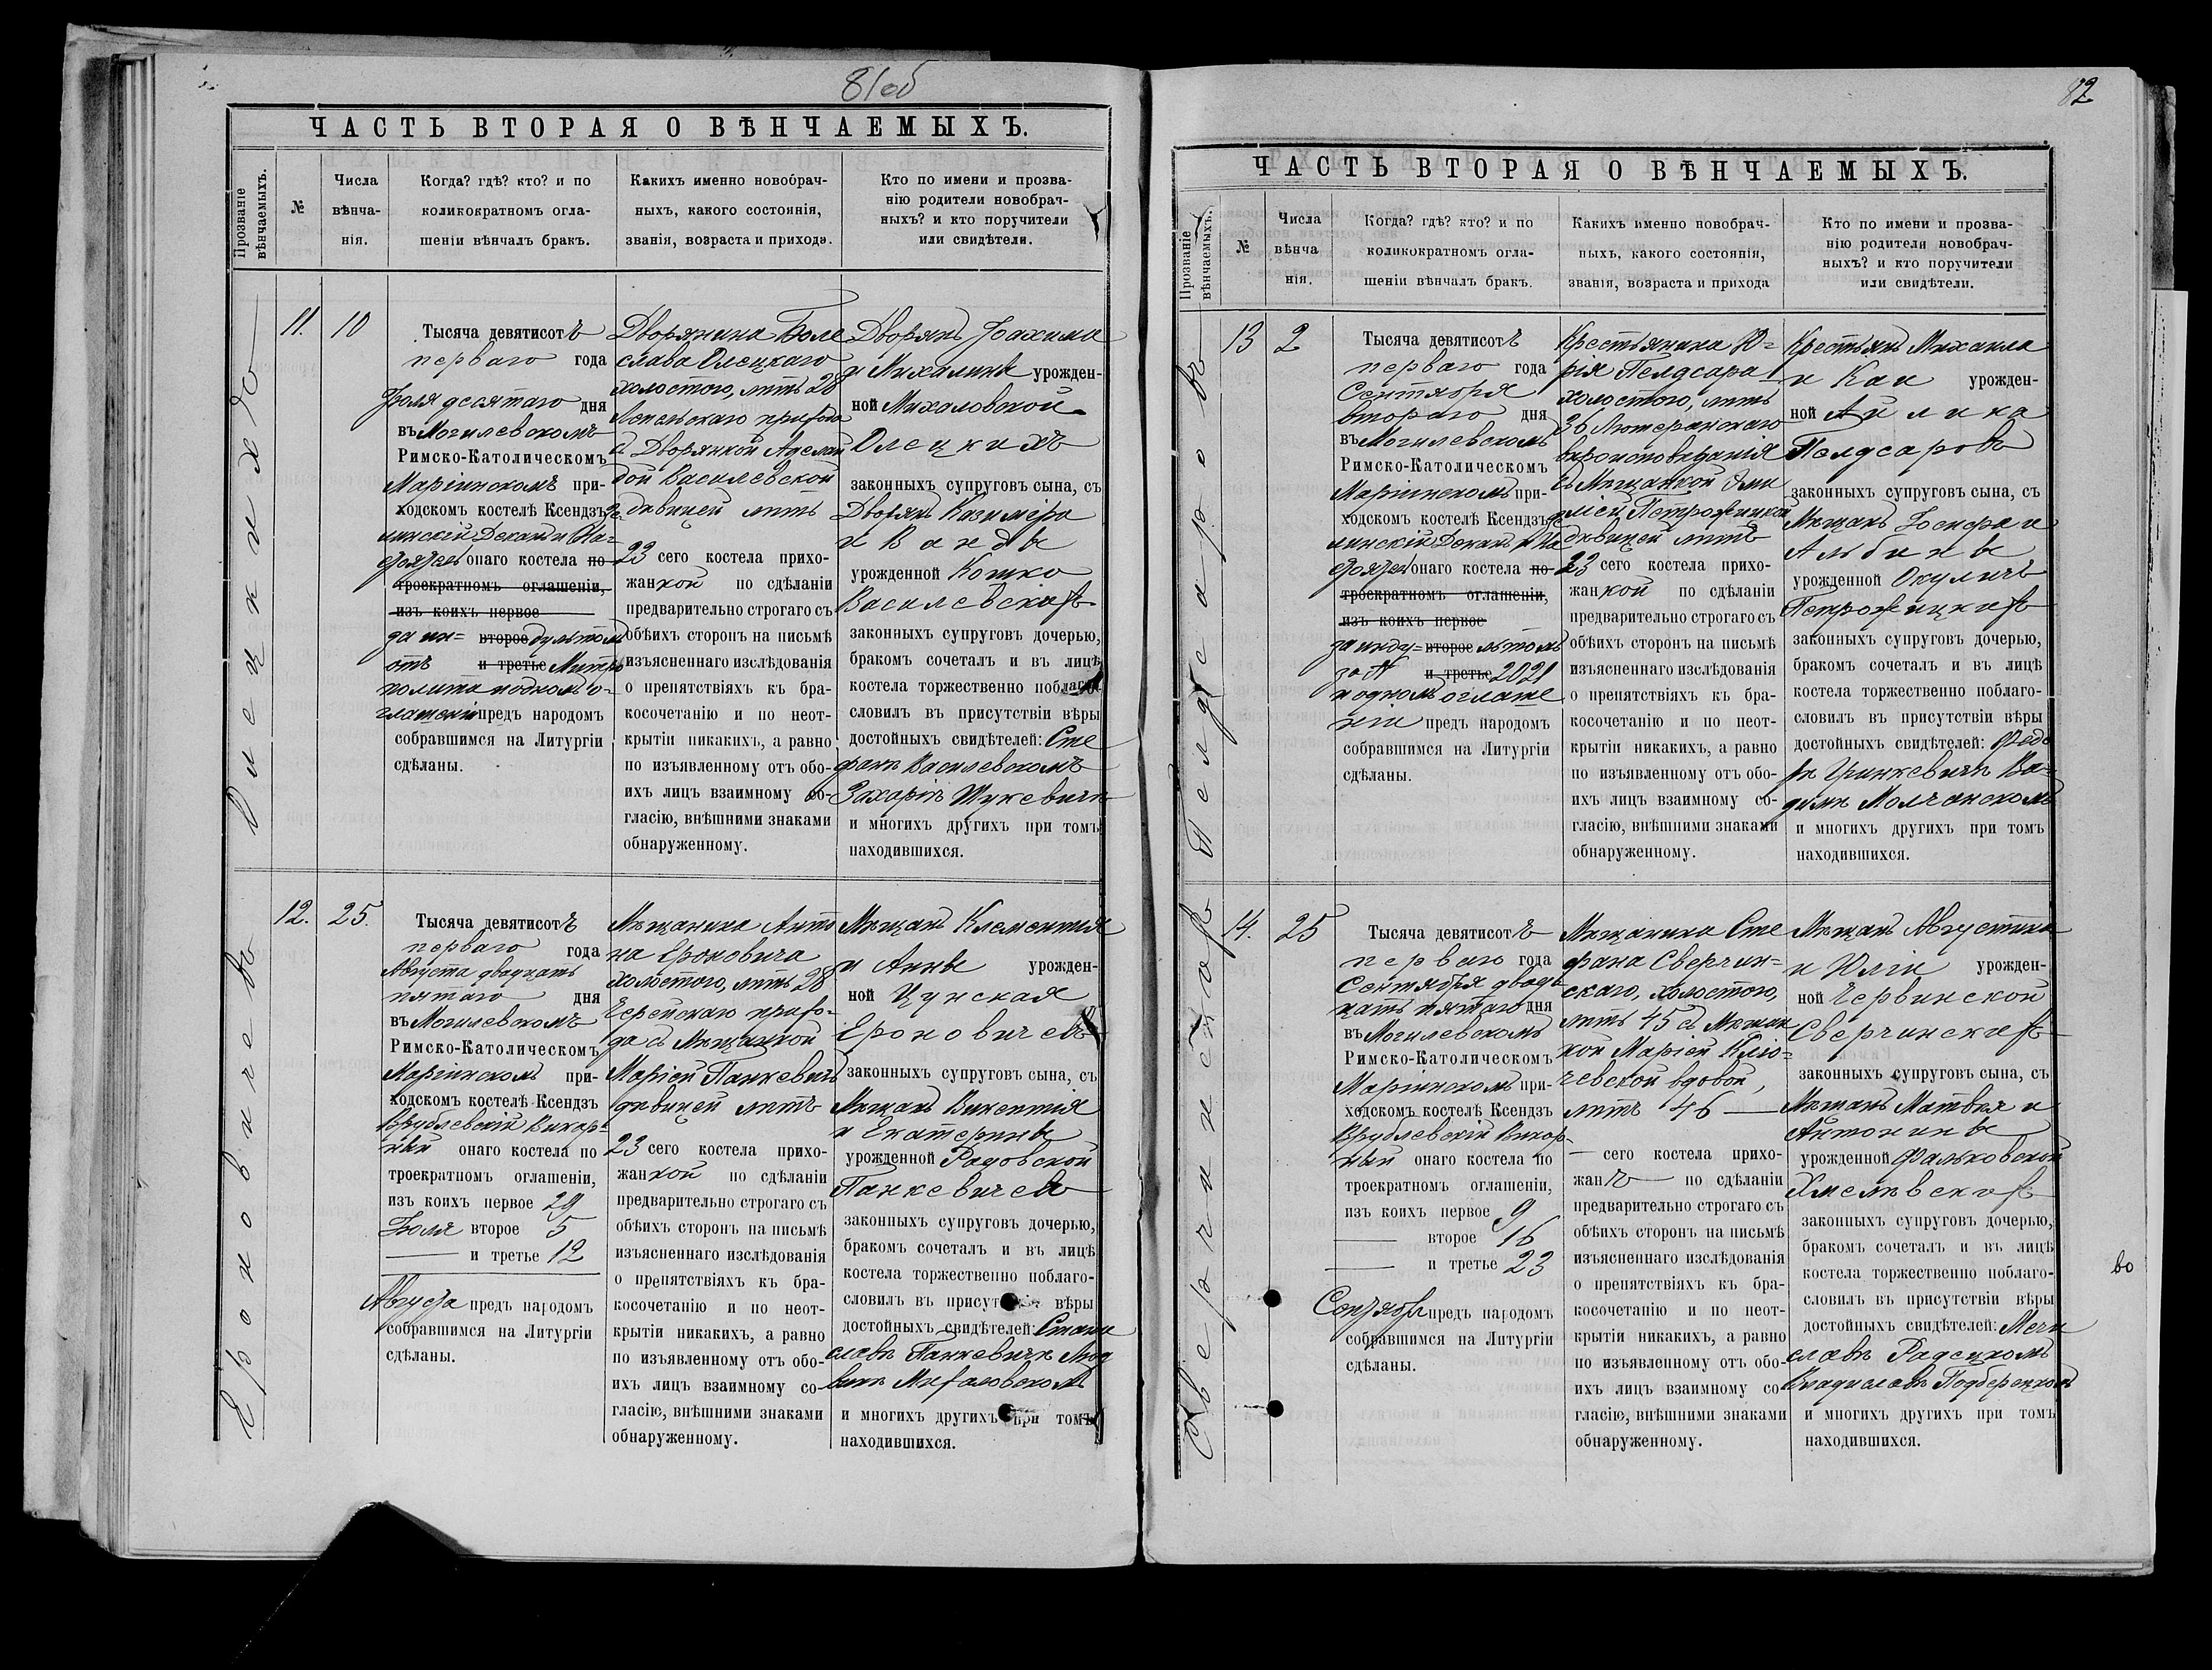 81об
ЧАСТЬ ВТОРАЯ О ВѢНЧАЕМЫХЪ.
Прозваніе вѣнчаемыхъ.
№
Числа вѣнча-нія.
Когда? гдѣ? кто? и по
коликократномъ огла-
шеніи вѣнчалъ бракъ.
Какихъ именно новобрач-
ныхъ, какого состоянія,
званія, возраста и прихода.
Кто по имени и прозва-
нію родители новобрач-
ныхъ? и кто поручители
или свидѣтели.
11.
10
Тысяча девятисотъ
перваго года
Іюля десятаго дня
въ Могилевскомъ
Римско-Католическомъ
Маріинскомъ при-
ходскомъ костелѣ Ксендзъ
онаго костела по
троекратномъ оглашеніи,
изъ коихъ первое
второе
и третье
предъ народомъ
собравшимся на Литургіи
сдѣланы.
Дворянина Боле
слава Олецкаго
холостого, лѣтъ 28
прихода
съ Дворянкой Аделаи
дой Василевской
дѣвицей лѣтъ
23 сего костела прихо-
жанкой по сдѣланіи
предварительно строгаго съ
обѣихъ сторонъ на письмѣ
изъясненнаго изслѣдованія
о препятствіяхъ къ бра-
косочетанію и по неот-
крытіи никакихъ, а равно
по изъявленному отъ обо-
ихъ лицъ взаимному со-
гласію, внѣшними знаками
обнаруженному.
Дворянъ Іоахима
и Михалины урожден-
ной Михаловской
Олецкихъ
законныхъ супруговъ сына, съ
Дворянъ Казимѣра
и Ванды
урожденной Кошко
Василевскихъ
законныхъ супруговъ дочерью,
бракомъ сочеталъ и въ лицѣ
костела торжественно поблаго-
словилъ въ присутствіи вѣры
достойныхъ свидѣтелей: Сте
фанѣ Василевскомъ
Захаріѣ Шукевичѣ
и многихъ другихъ при томъ
находившихся.
Ероковичевъ
12.
25.
Тысяча девятисотъ
перваго года
Августа двадцать
пятаго дня
въ Могилевскомъ
Римско-Католическомъ
Маріинскомъ при-
ходскомъ костелѣ Ксендзъ
Врублевскій Викар-
ный онаго костела по
троекратномъ оглашеніи,
изъ коихъ первое 29
Іюля второе 5
и третье 12
Августа предъ народомъ
собравшимся на Литургіи
сдѣланы.
Мѣщанина Анто
на Ероковича
холостого, лѣтъ 28
Черейскаго прихо-
да съ Мѣщанкой
Маріей Панкевичъ
дѣвицей лѣтъ
23 сего костела прихо-
жанкой по сдѣланіи
предварительно строгаго съ
обѣихъ сторонъ на письмѣ
изъясненнаго изслѣдованія
о препятствіяхъ къ бра-
косочетанію и по неот-
крытіи никакихъ, а равно
по изъявленному отъ обо-
ихъ лицъ взаимному со-
гласію, внѣшними знаками
обнаруженному.
Мѣщанъ Клементія
и Анны урожден-
ной Цунская
Ероковичевъ
законныхъ супруговъ сына, съ
Мѣщанъ Викентія
и Екатерины
урожденной Радовской
Панкевичевъ
законныхъ супруговъ дочерью,
бракомъ сочеталъ и въ лицѣ
костела торжественно поблаго-
словилъ въ присутствіи вѣры
достойныхъ свидѣтелей: Стани
славѣ Панкевичѣ Люд
викѣ Михаловскомъ
и многихъ другихъ при томъ
находившихся.
82
ЧАСТЬ ВТОРАЯ О ВѢНЧАЕМЫХЪ.
Прозваніе вѣнчаемыхъ.
№
Числа вѣнча нія.
Когда? гдѣ? кто? и по
коликократномъ огла-
шеніи вѣнчалъ бракъ.
Какихъ именно новобрач-
ныхъ, какого состоянія,
званія, возраста и прихода
Кто по имени и прозва-
нію родители новобрач-
ныхъ? и кто поручители
или свидѣтели.
Пелдсаровъ
13
2
Тысяча девятисотъ
перваго года
Сентября
второго дня
въ Могилевскомъ
Римско-Католическомъ
Маріинскомъ при-
ходскомъ костелѣ Ксендзъ
онаго костела по
троекратномъ оглашеніи,
изъ коихъ первое
второе
за № и третье 2021
и одномъ оглаше
ніи предъ народомъ
собравшимся на Литургіи
сдѣланы.
Крестьянина Ю-
рія Пелдсара
холостого, лѣтъ
36 Лютеранскаго
вѣроисповѣданія
съ Мѣщанкой Эми
ліей Петрожицкой
дѣвицей лѣтъ
23 сего костела прихо-
жанкой по сдѣланіи
предварительно строгаго съ
обѣихъ сторонъ на письмѣ
изъясненнаго изслѣдованія
о препятствіяхъ къ бра-
косочетанію и по неот-
крытіи никакихъ, а равно
по изъявленному отъ обо-
ихъ лицъ взаимному со-
гласію, внѣшними знаками
обнаруженному.
Крестьянъ Михаила
и Каи урожден-
ной
Пелдсаровъ
законныхъ супруговъ сына, съ
Мѣщанъ Іосифа и
Альбины
урожденной Окуличъ
Петрожицкихъ
законныхъ супруговъ дочерью,
бракомъ сочеталъ и въ лицѣ
костела торжественно поблаго-
словилъ въ присутствіи вѣры
достойныхъ свидѣтелей: Федо
рѣ Гринкевичѣ Ва-
димѣ Молчанскомъ
и многихъ другихъ при томъ
находившихся.
Сверчинскихъ
14.
25
Тысяча девятисотъ
перваго года
Сентября двад-
цать пятаго дня
въ Могилевскомъ
Римско-Католическомъ
Маріинскомъ при-
ходскомъ костелѣ Ксендзъ
Врублевскій Викар-
ный онаго костела по
троекратномъ оглашеніи,
изъ коихъ первое 9
второе 16
и третье 23
Сентября предъ народомъ
собравшимся на Литургіи
сдѣланы.
Мѣщанина Сте
фана Сверчин-
скаго, холостого,
лѣтъ 45 съ Мѣщан
кой Маріей Клю-
чевской вдовой,
лѣтъ 46
сего костела прихо-
жанъ по сдѣланіи
предварительно строгаго съ
обѣихъ сторонъ на письмѣ
изъясненнаго изслѣдованія
о препятствіяхъ къ бра-
косочетанію и по неот-
крытіи никакихъ, а равно
по изъявленному отъ обо-
ихъ лицъ взаимному со
гласію, внѣшними знаками
обнаруженному.
Мѣщанъ Августина
и Юліи урожден-
ной Червинской
Сверчинскихъ
законныхъ супруговъ сына, съ
Мѣщанъ Матвѣя и
Антонины
урожденной Фальковской
Хмелевскихъ
законныхъ супруговъ дочерью,
бракомъ сочеталъ и въ лицѣ
костела торжественно поблаго-
словилъ въ присутствіи вѣры
достойныхъ свидѣтелей: Мечи
славѣ Радецкомъ
Владиславѣ Подберецкомъ
и многихъ другихъ при томъ
находившихся.
во